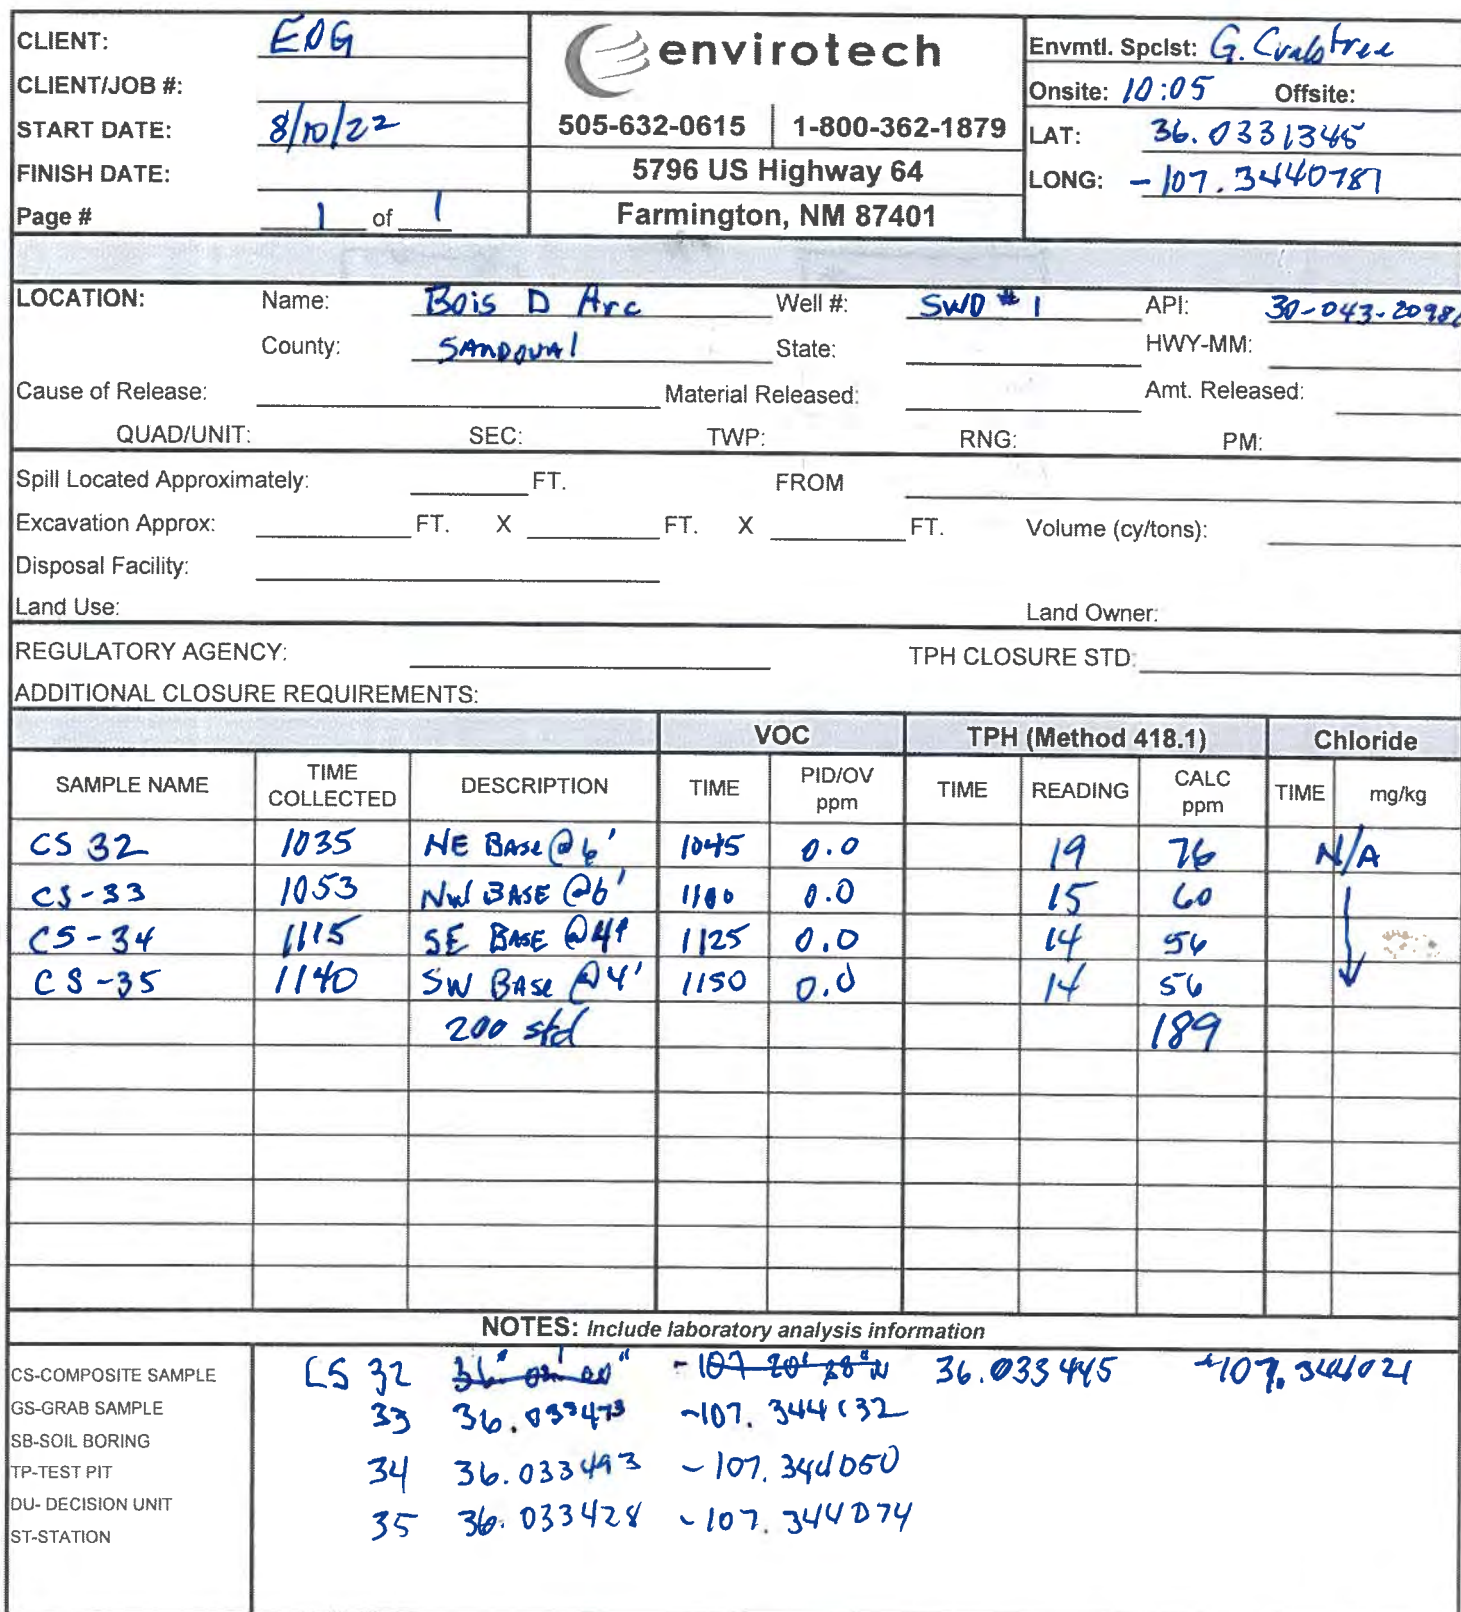 CLIENT: EOG
CLIENT/JOB #:
START DATE: 8/10/22
FINISH DATE:
Page # 1 of 1
envirotech
505-632-0615 1-800-362-1879
5796 US Highway 64
Farmington, NM 87401
Envmtl. Spclst: G. Crabtree
Onsite: 10:05 Offsite:
LAT: 36.0331345
LONG: -107.3440787
LOCATION: Name: Bois D Arc Well #: SWD #1 API: 30-043-2098
County: SANDOVAl State: HWY-MM:
Cause of Release: Material Released: Amt. Released:
QUAD/UNIT: SEC: TWP: RNG: PM:
Spill Located Approximately: FT. FROM
Excavation Approx: FT. X FT. X FT. Volume (cy/tons):
Disposal Facility:
Land Use: Land Owner:
REGULATORY AGENCY: TPH CLOSURE STD:
ADDITIONAL CLOSURE REQUIREMENTS:
VOC TPH (Method 418.1) Chloride
SAMPLE NAME TIME COLLECTED DESCRIPTION TIME PID/OV ppm TIME READING CALC ppm TIME mg/kg
CS 32 1035 NE BASE @ 6' 1045 0.0 19 76 N/A
CS-33 1053 NW BASE @6' 1100 0.0 15 60
CS-34 1115 SE BASE @4' 1125 0.0 14 56
CS-35 1140 SW BASE @4' 1150 0.0 14 56
200 std 189
NOTES: Include laboratory analysis information
CS-COMPOSITE SAMPLE
GS-GRAB SAMPLE
SB-SOIL BORING
TP-TEST PIT
DU- DECISION UNIT
ST-STATION
CS 32 36.033445 -107.344021
33 36.033473 -107.344132
34 36.033493 -107.344050
35 36.033428 -107.344074